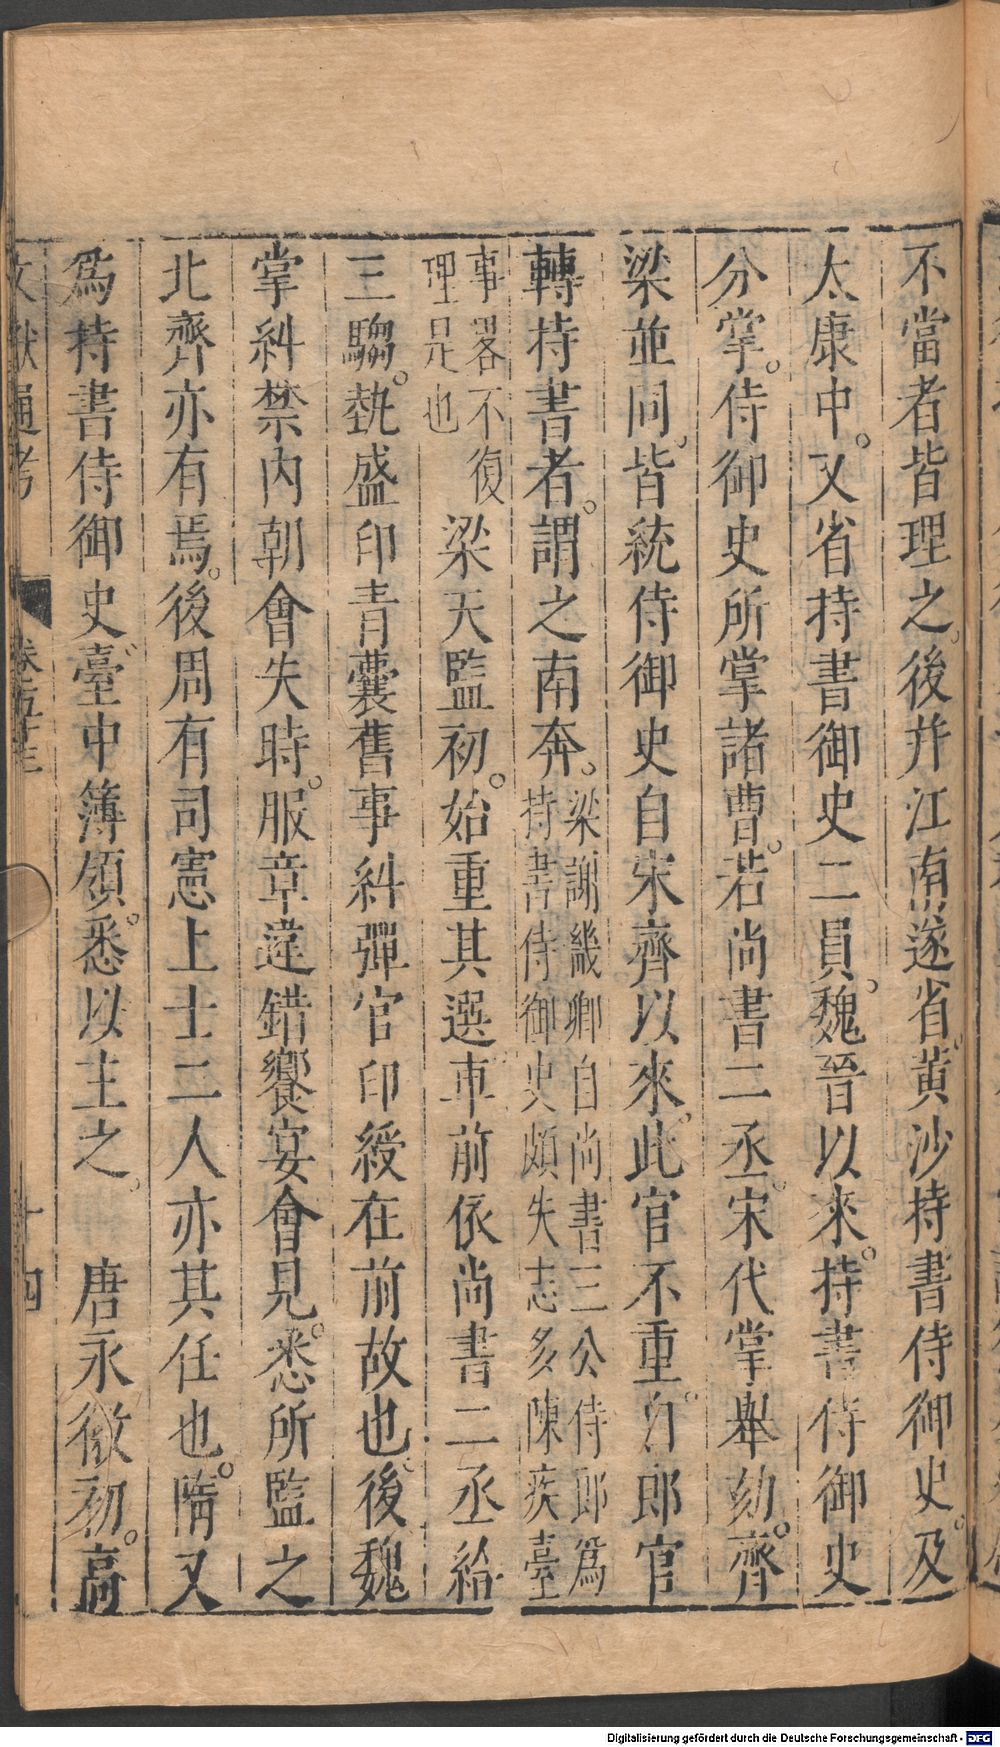 不當者皆理之。後并江南。遂省黃沙持書侍御史。及
太康中。又省持書御史二員。魏晉以來。持書侍御史
分掌。侍御史所掌諸曹。若尚書二丞。宋代掌舉劾。齊
梁並同。皆統侍御史自宋齊以來。此官不重。自郎官
轉持書者。謂之南奔。梁謝幾卿自尚書三公侍郎為
持書侍御史頗失志多陳疾臺
事畧不復
理是也
梁天監初。始重其選車前依尚書二丞給
三騶。執盛印青囊舊事糾彈官印綬在前故也。後魏
掌糾禁內朝會失時。服章違錯饗宴會見。悉所監之
北齊亦有焉。後周有司憲上士二人亦其任也。隋又
為持書侍御史。臺中簿領。悉以主之。 唐永徽初。高
文獻通考 卷五十三 十四
Digitalisierung gefördert durch die Deutsche Forschungsgemeinschaft - DFG